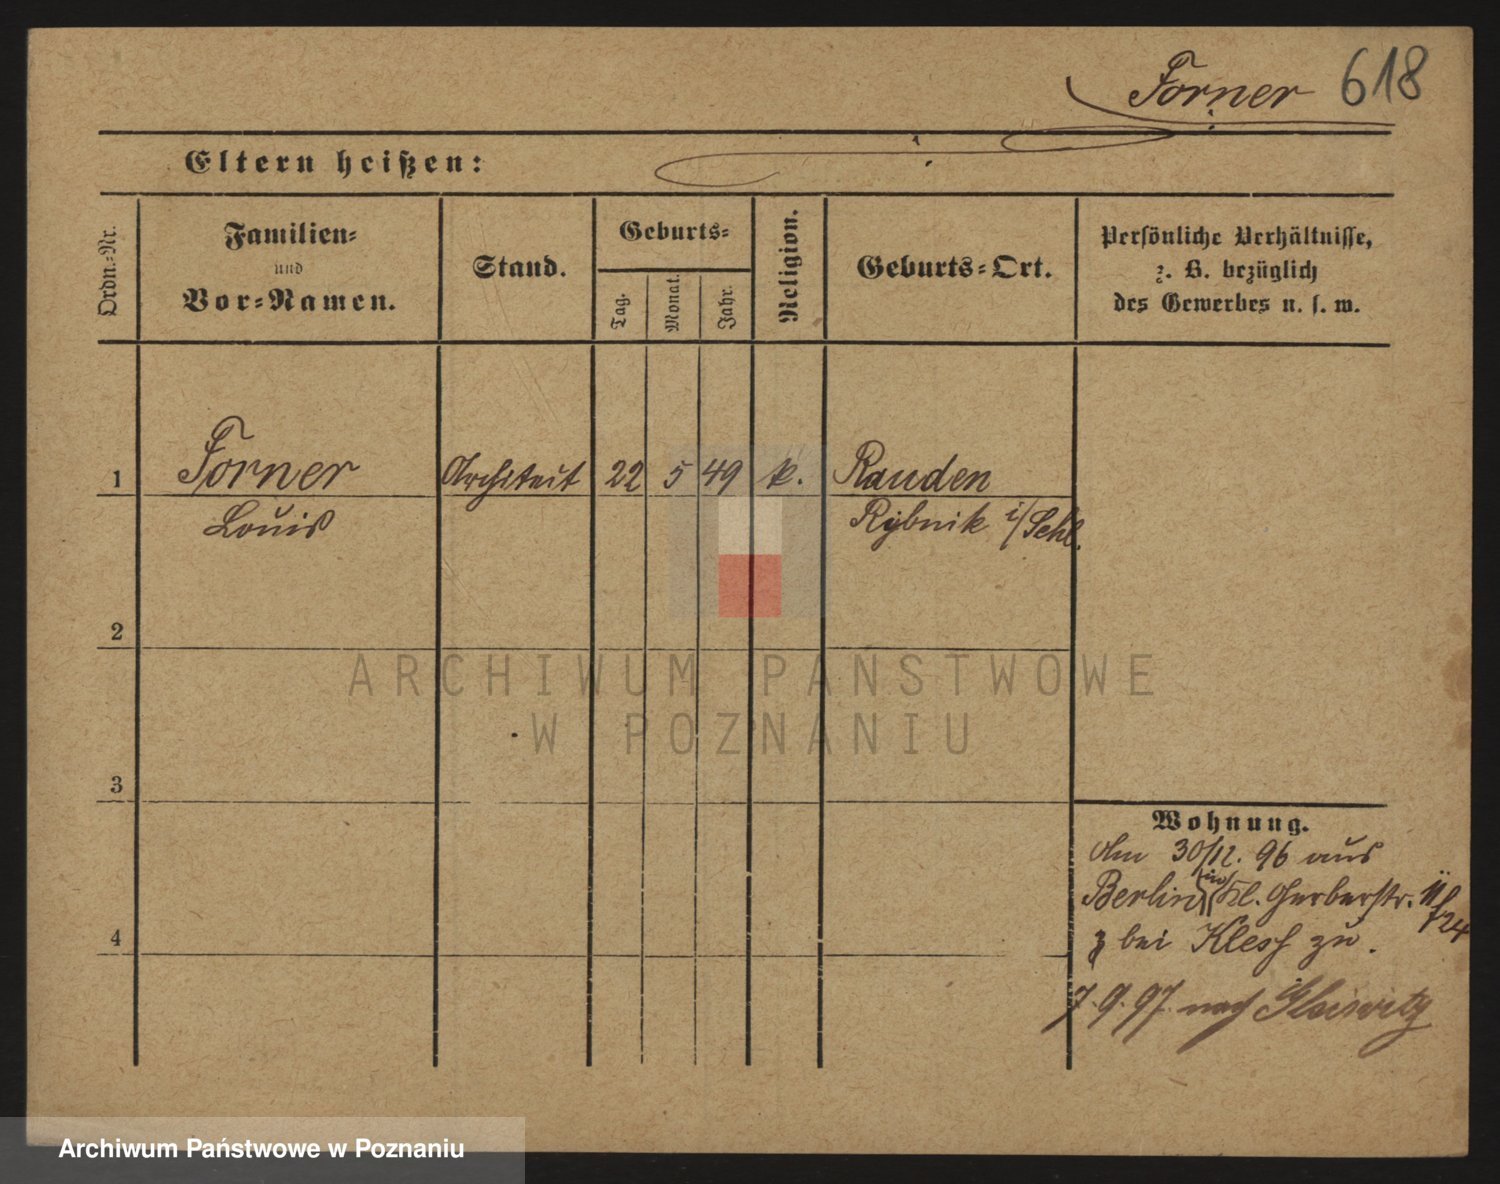 Forner 618
Eltern heißen:
Ordn.-Nr.
Familien-
und
Vor-Namen.
Stand.
Geburts-
Tag.
Monat.
Jahr.
Religion.
Geburts-Ort.
Persönliche Verhältnisse,
z. B. bezüglich
des Gewerbes u. s. w.
1 Forner Architect 22 5 49 k. Rauden
Louis Rybnik i/Schl.
2
3
4
Wohnung.
Am 30/12. 96 aus
Berlin in Kl. Gerberstr.
bei Klesh zu.
7. 9. 97 nach
ARCHIWUM PAŃSTWOWE
W POZNANIU
Archiwum Państwowe w Poznaniu